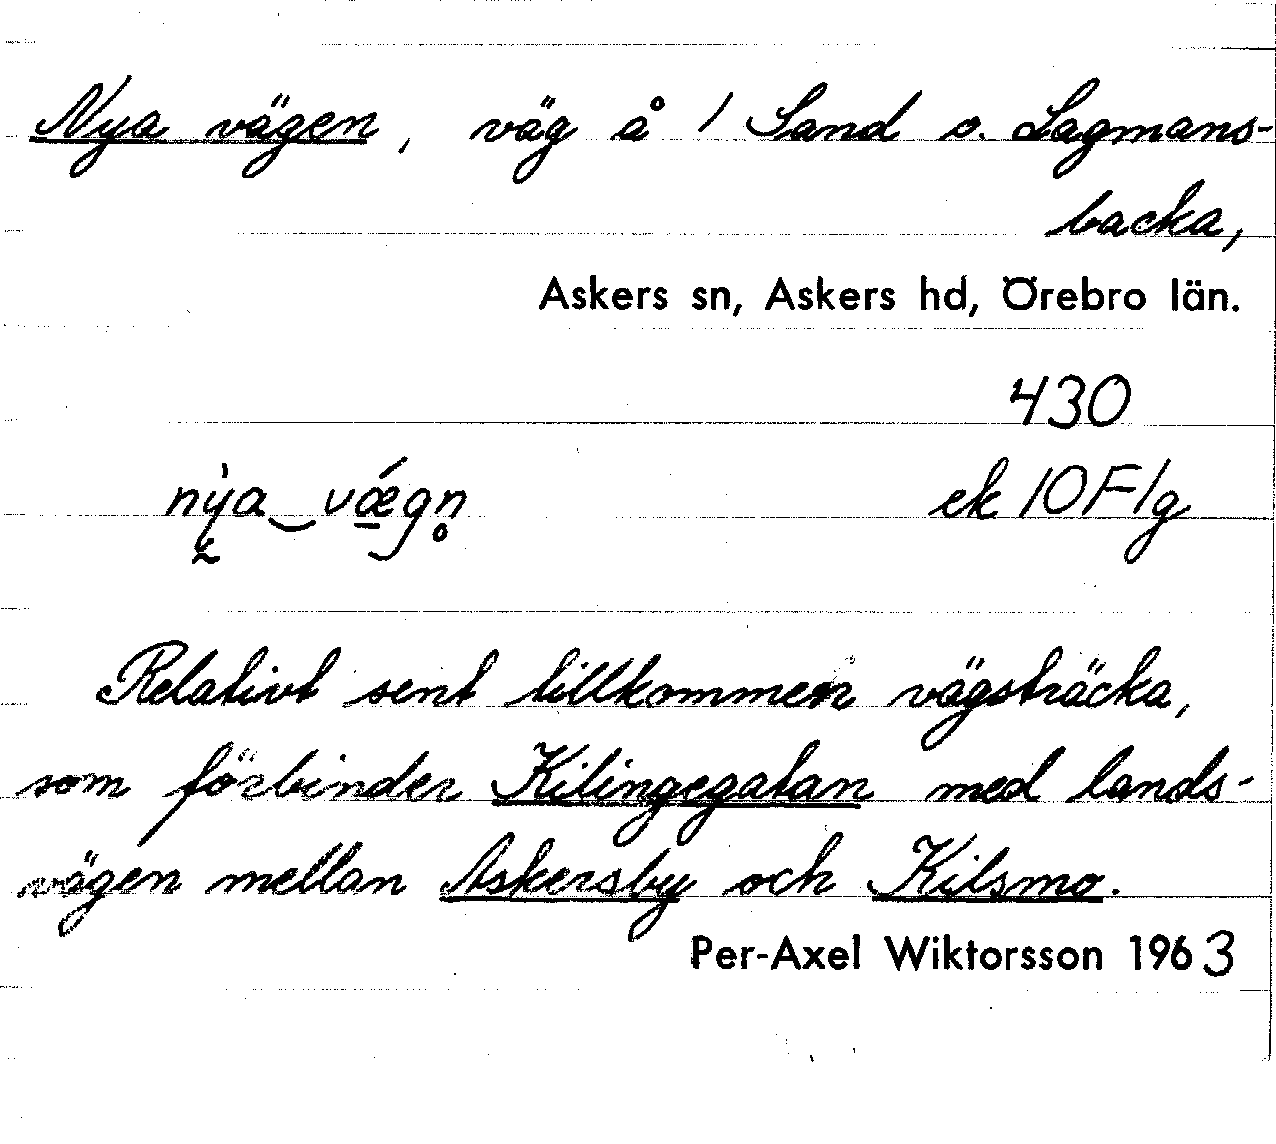 Nya vägen, väg å / Sand o. Lagmans-
backa,
Askers sn, Askers hd, Örebro län.
430
nya vægn ek 10F/g
Relativt sent tillkommen vägsträcka,
som förbinder Kilingegatan med lands-
vägen mellan Askersby och Kilsmo.
Per-Axel Wiktorsson 1963